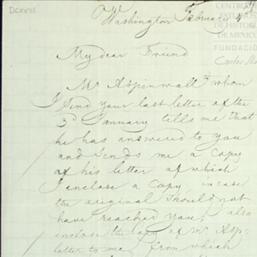 DCXXXI
CENTRO
DE HISTORIA
DE MEXICO
FUNDACIÓN
Carlos
Washington February
My dear Friend
Mr Aspenwall to whom
I send your last letter of the
3d January tells me that
he has answered to you
and sends me a copy
of his letter of which
I enclose a copy in case
the original should not
have reached you; also
enclose the copy of Mr Asp.
letter to me, from which